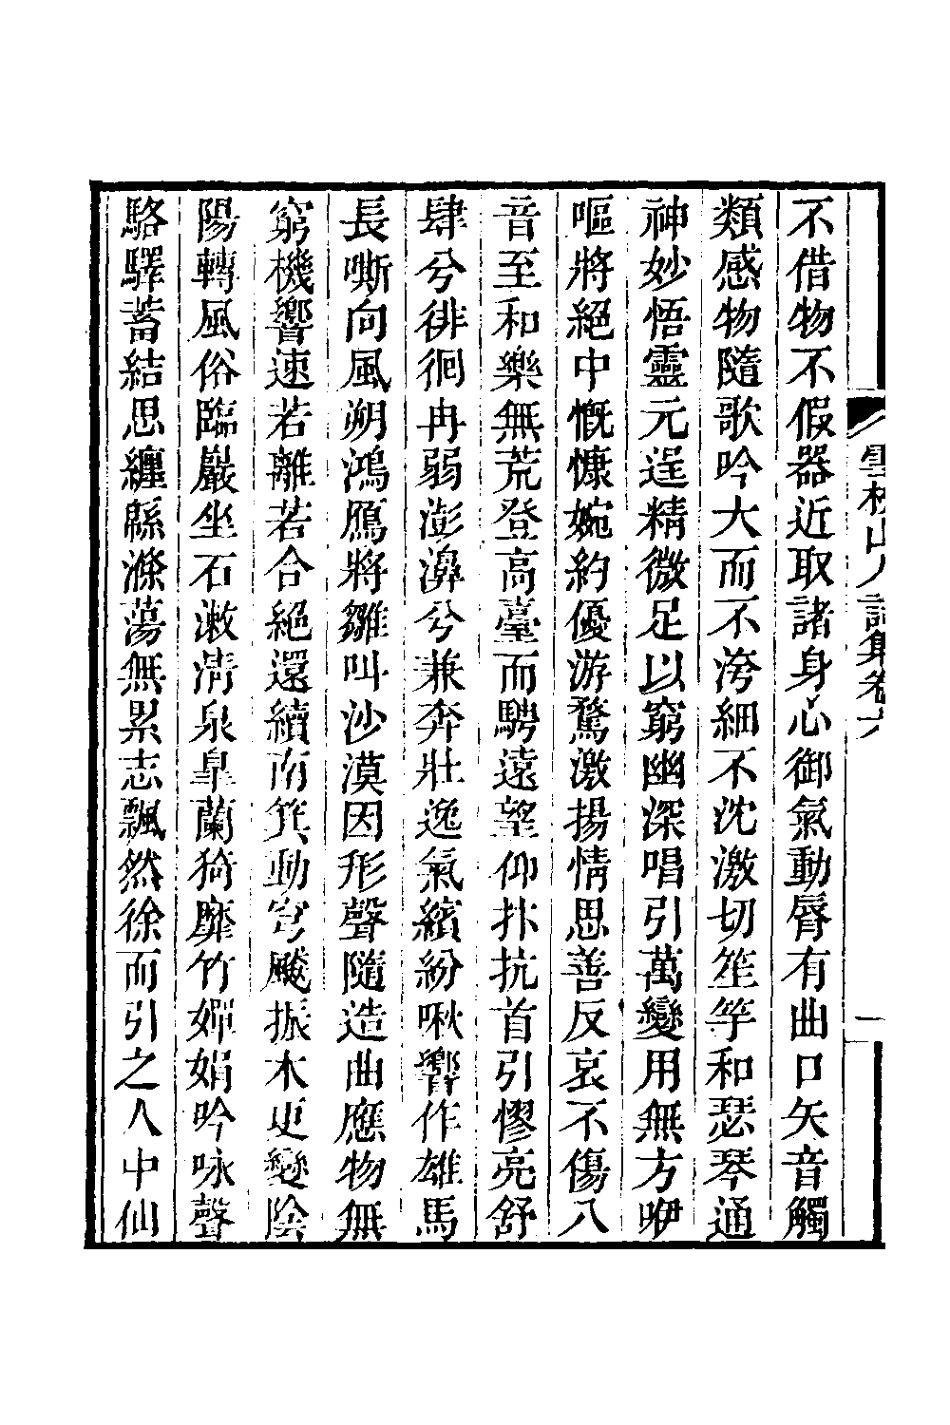 雲林山人詩集卷六
一
不借物不假器近取諸身心御氣動脣有曲口矢音觸
類感物隨歌吟大而不洿細不沈激切笙竽和瑟琴通
神妙悟靈元逞精微足以窮幽深唱引萬變用無方咿
嘔將絕中慨慷婉約優游驚激揚情思善反哀不傷八
音至和樂無荒登高臺而騁遠望仰抃抗首引憀亮舒
肆兮徘徊冉弱澎濞兮兼奔壯逸氣繽紛啾響作雄馬
長嘶向風朔鴻鴈將雛叫沙漠因形聲隨造曲應物無
窮機響速若離若合絕還續南箕動穹飈振木更變陰
陽轉風俗臨巖坐石漱清泉皐蘭猗靡竹嬋娟吟咏聲
駱驛蓄結思纏緜滌蕩無累志飄然徐而引之人中仙